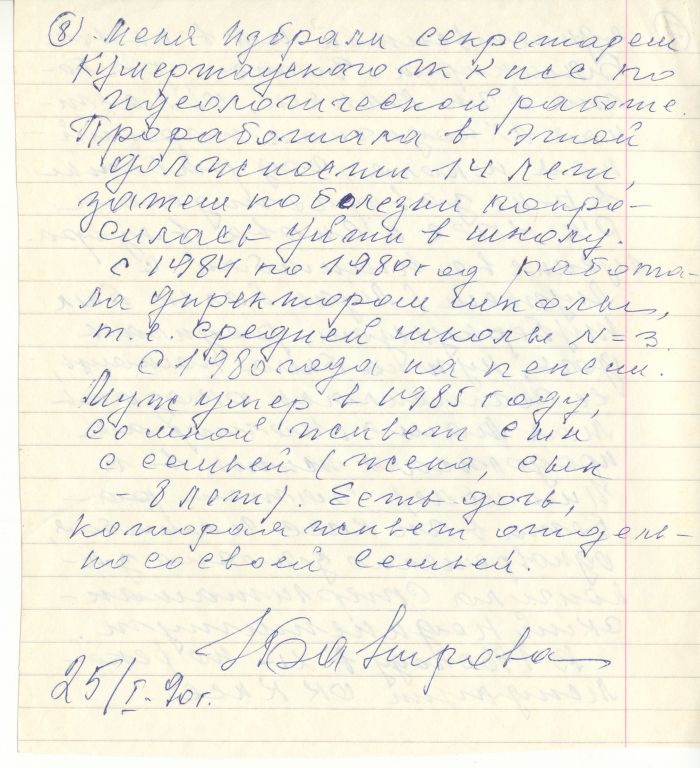 8) Меня избрали секретарем
Кумертауского ГК КПСС по
идеологической работе.
Проработала в этой
должности 14 лет,
затем по болезни попро-
силась уйти в школу.
С 1984 по 1980 год работа-
ла директором школы,
т.е. средней школы N=3.
С 1980 года на пенсии.
Муж умер в 1985 году,
со мной живет сын
с семьей (жена, сын
- 8 лет). Есть дочь,
которая живет отдель-
но со своей семьей.
25/I-90г.